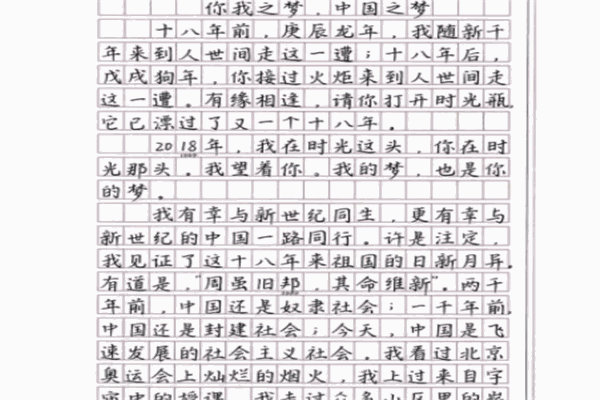 你我之梦，中国之梦
十八年前，庚辰龙年，我随新千
年来到人世间走这一遭；十八年后，
戊戌狗年，你接过火炬来到人世间走
这一遭。有缘相逢，请你打开时光瓶，
它已漂过了又一个十八年。
2018年，我在时光这头，你在时
光那头。我望着你。我的梦，也是你
的梦。
我有幸与新世纪同生，更有幸与
新世纪的中国一路同行。许是注定，
我见证了这十八年来祖国的日新月异。
有道是，“周虽旧邦，其命维新”。两千
年前，中国还是奴隶社会；一千年前，
中国还是封建社会；今天，中国是飞
速发展的社会主义社会。我看过北京
奥运会上灿烂的烟火，我上过来自宇
宙中的授课，我走过众多山区里的